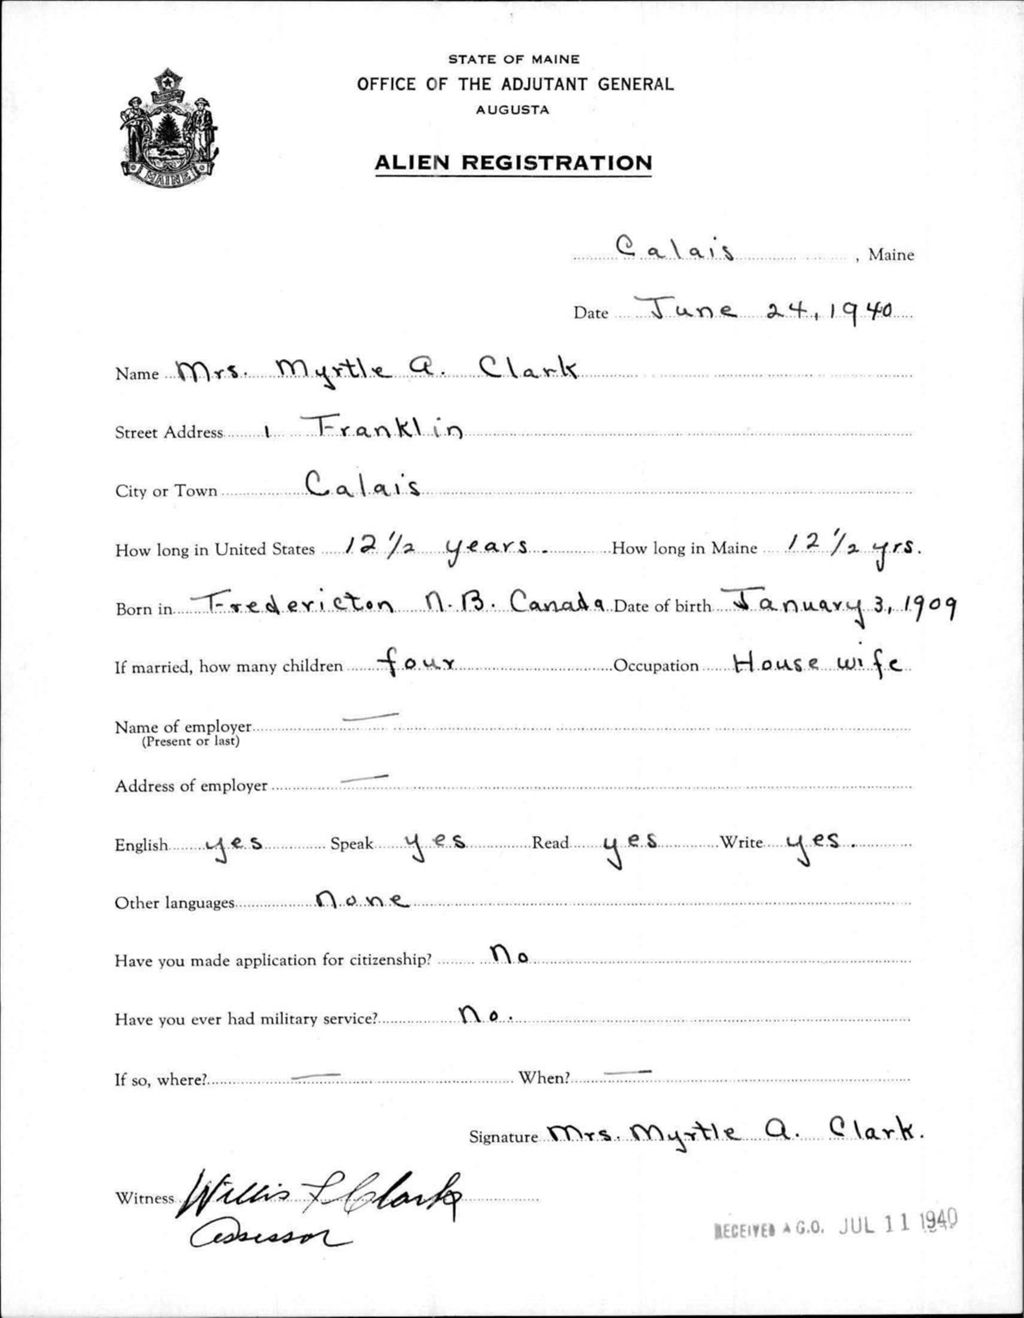 STATE OF MAINE
OFFICE OF THE ADJUTANT GENERAL
AUGUSTA
ALIEN REGISTRATION
MAINE
Calais, Maine
Date June 24, 1940
Name Mrs. Myrtle A. Clark
Street Address 1 Franklin
City or Town Calais
How long in United States 12 1/2 years. How long in Maine 12 1/2 yrs.
Born in Fredericton N.B. Canada Date of birth January 3, 1909
If married, how many children four Occupation House wife
Name of employer —
(Present or last)
Address of employer —
English yes Speak yes Read yes Write yes.
Other languages None
Have you made application for citizenship? No
Have you ever had military service? No.
If so, where? — When? —
Signature Mrs. Myrtle A. Clark.
Witness Willis L Clark
Assessor
RECEIVED A.G.O. JUL 11 1940